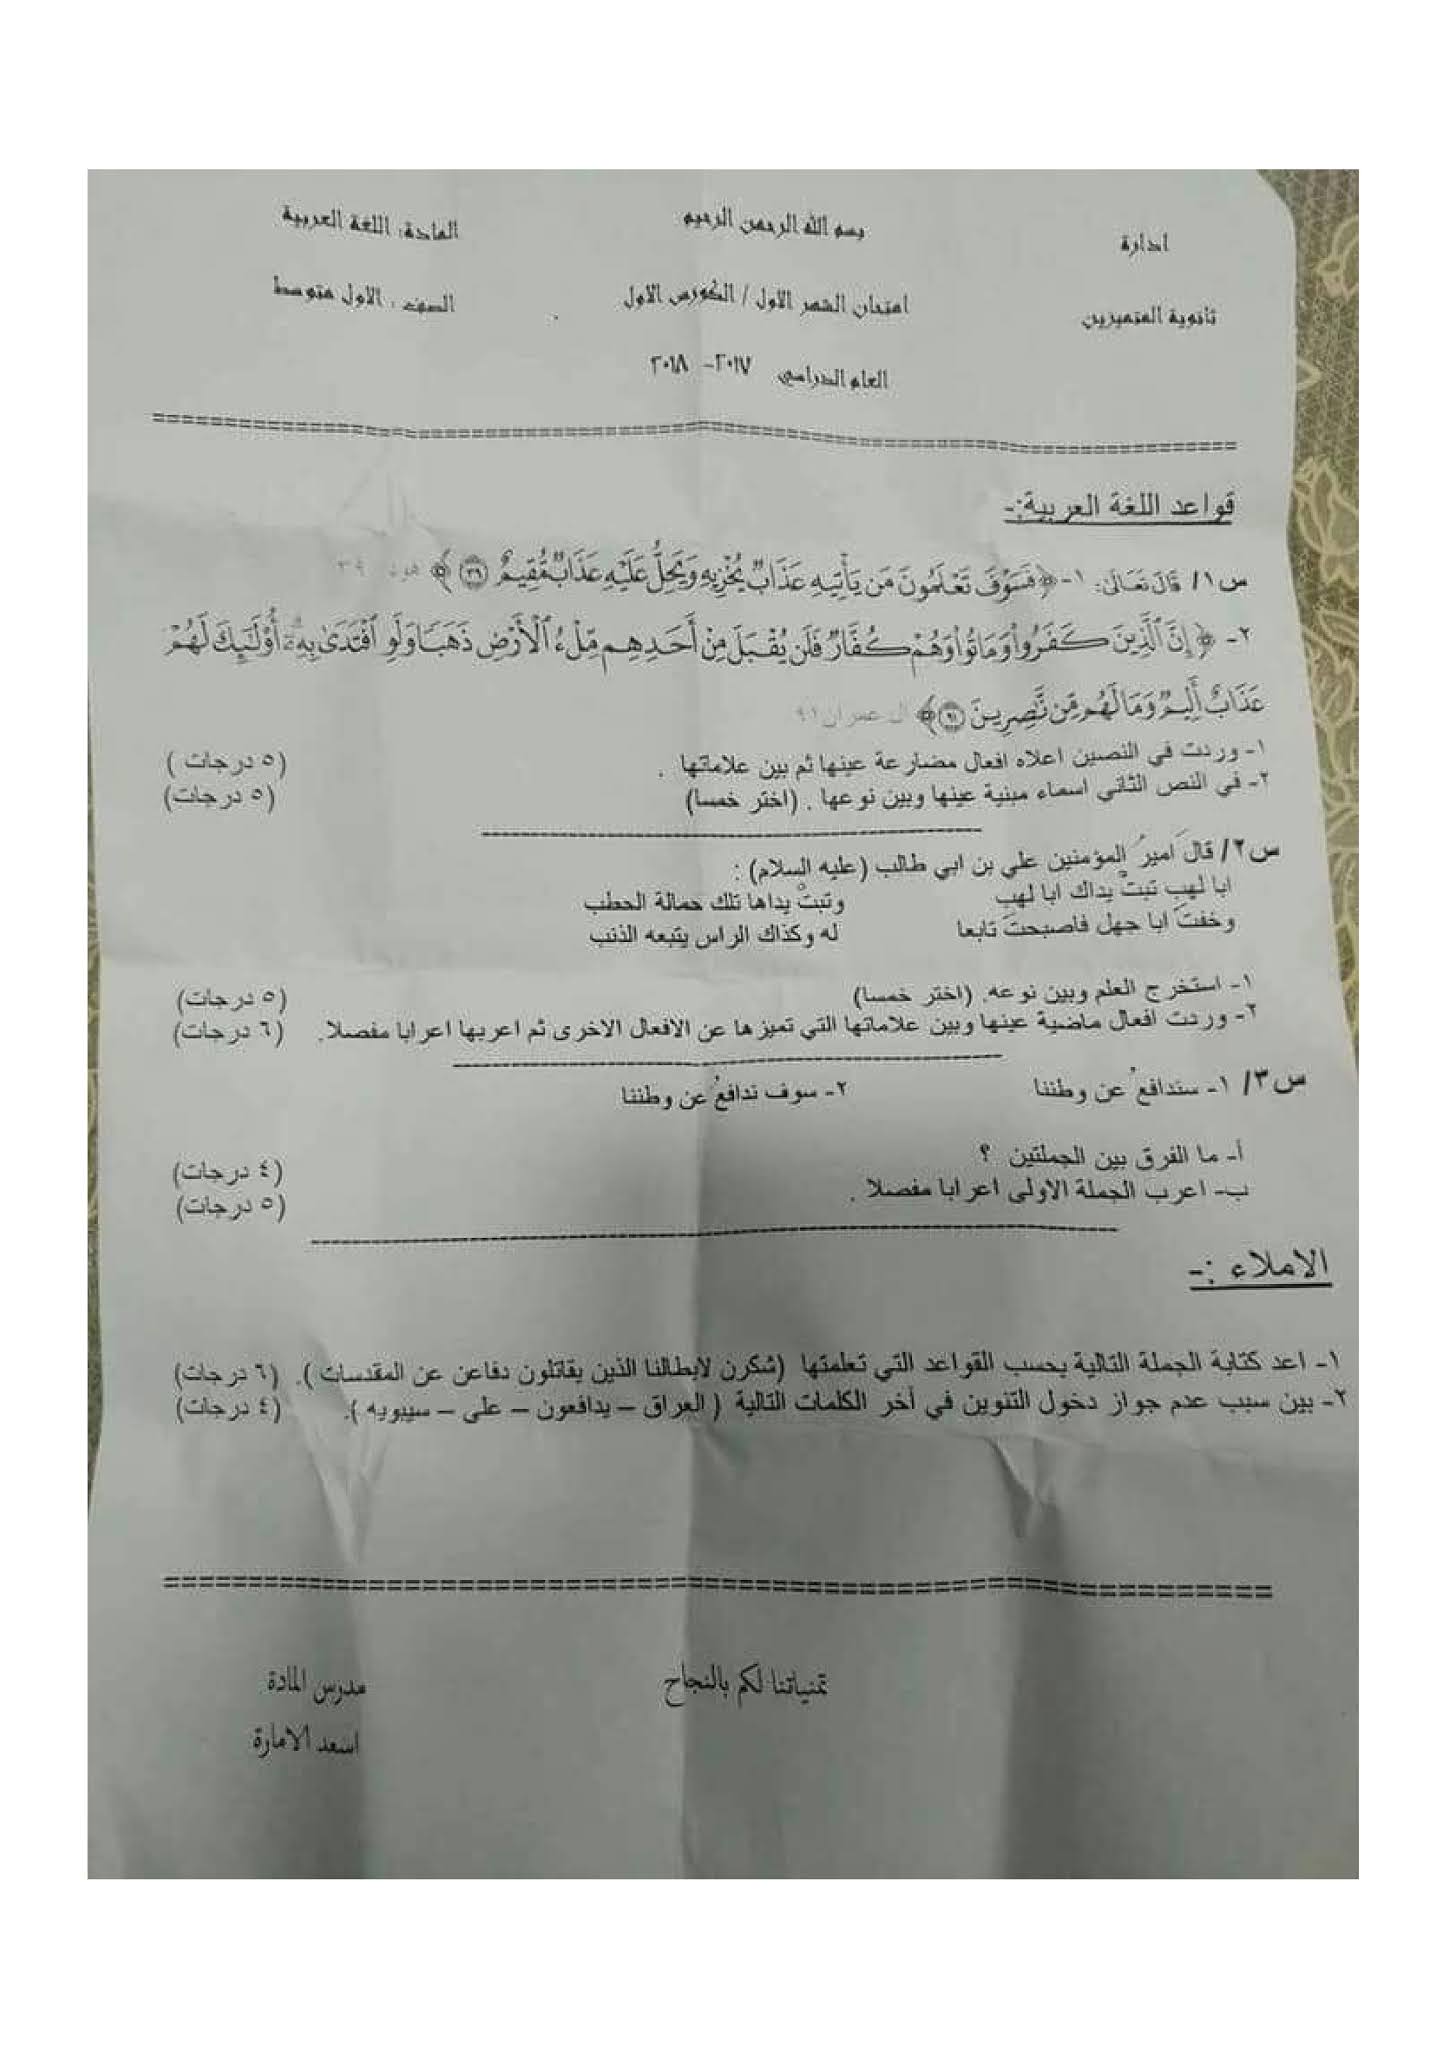 ادارة
بسم الله الرحمن الرحيم
المادة: اللغة العربية
ثانوية المتميزين
امتحان الشهر الاول / الكورس الاول
الصف : الاول متوسط
العام الدراسي ٢٠١٧- ٢٠١٨
قواعد اللغة العربية:-
س١/ قَالَ تَعَالَىٰ: ١- ﴿ فَسَوْفَ تَعْلَمُونَ مَن يَأْتِيهِ عَذَابٌ يُخْزِيهِ وَيَحِلُّ عَلَيْهِ عَذَابٌ مُّقِيمٌ ﴿٣٩﴾ ﴾ هود ٣٩
٢- ﴿ إِنَّ ٱلَّذِينَ كَفَرُوا۟ وَمَاتُوا۟ وَهُمْ كُفَّارٌ فَلَن يُقْبَلَ مِنْ أَحَدِهِم مِّلْءُ ٱلْأَرْضِ ذَهَبًا وَلَوِ ٱفْتَدَىٰ بِهِۦٓ أُو۟لَـٰٓئِكَ لَهُمْ
عَذَابٌ أَلِيمٌ وَمَا لَهُم مِّن نَّـٰصِرِينَ ﴿٩١﴾ ﴾ ال عمران ٩١
١- وردت في النصين اعلاه افعال مضارعة عينها ثم بين علاماتها . (٥ درجات )
٢- في النص الثاني اسماء مبنية عينها وبين نوعها . (اختر خمسا) (٥ درجات)
س٢/ قالَ اميرُ المؤمنين علي بن ابي طالب (عليه السلام) :
ابا لهبٍ تبتْ يداك ابا لهبِ وتبتْ يداها تلك حمالة الحطب
وخفتَ ابا جهل فاصبحتَ تابعا له وكذاك الراس يتبعه الذنب
١- استخرج العلم وبين نوعه. (اختر خمسا) (٥ درجات)
٢- وردت افعال ماضية عينها وبين علاماتها التي تميزها عن الافعال الاخرى ثم اعربها اعرابا مفصلا. (٦ درجات)
س٣/ ١- سندافعُ عن وطننا ٢- سوف ندافعُ عن وطننا
أ- ما الفرق بين الجملتين ؟ (٤ درجات)
ب- اعرب الجملة الاولى اعرابا مفصلا . (٥ درجات)
الاملاء :-
١- اعد كتابة الجملة التالية بحسب القواعد التي تعلمتها (شكرن لابطالنا الذين يقاتلون دفاعن عن المقدسات ). (٦ درجات)
٢- بين سبب عدم جواز دخول التنوين في آخر الكلمات التالية ( العراق – يدافعون – على – سيبويه ). (٤ درجات)
تمنياتنا لكم بالنجاح
مدرس المادة
اسعد الامارة